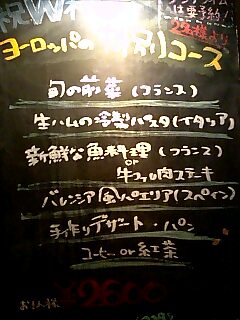 祝W
は要予約!
2名様より
ヨーロッパの 別りコース
旬の前菜(フランス)
生ハムの冷製パスタ(イタリア)
新鮮な魚料理(フランス)
or
牛フィレ肉ステーキ
バレンシア風パエリア(スペイン)
手作りデザート・パン
コーヒー or 紅茶
お1人様 ¥2600